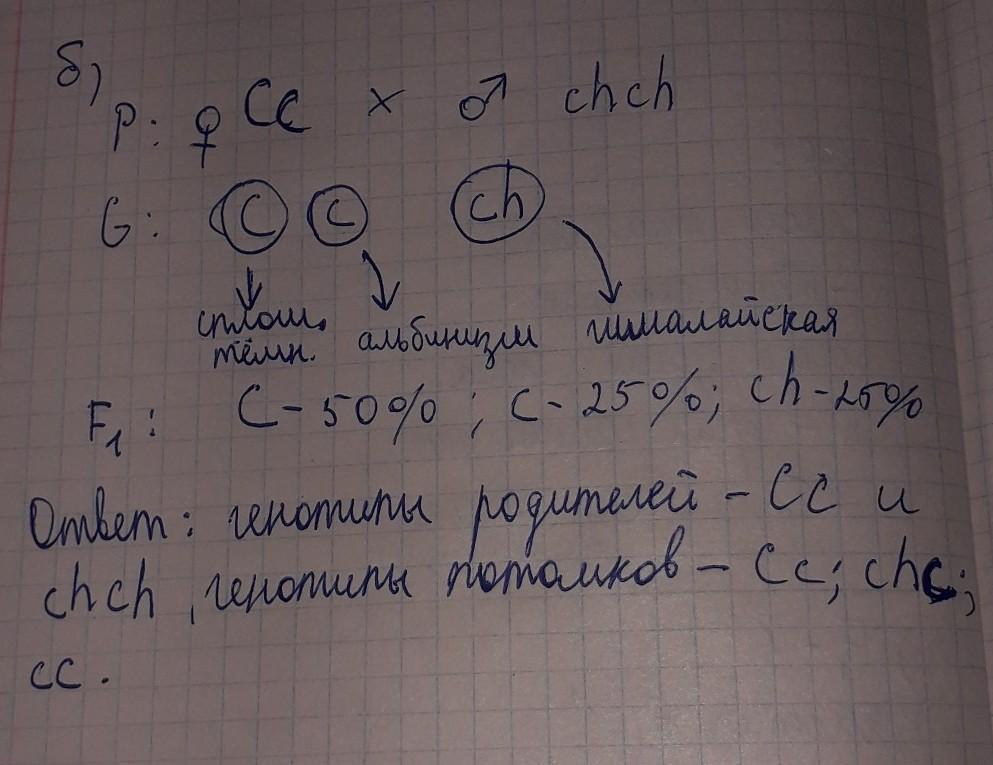 б)
P: ♀ Cc × ♂ chch
G: C c ch
сплош. тёмн. альбинизм гималайская
F₁: C - 50% ; c - 25%; ch - 25%
Ответ: генотипы родителей - Cc и
chch, генотипы потомков - Cc; chc;
cc.